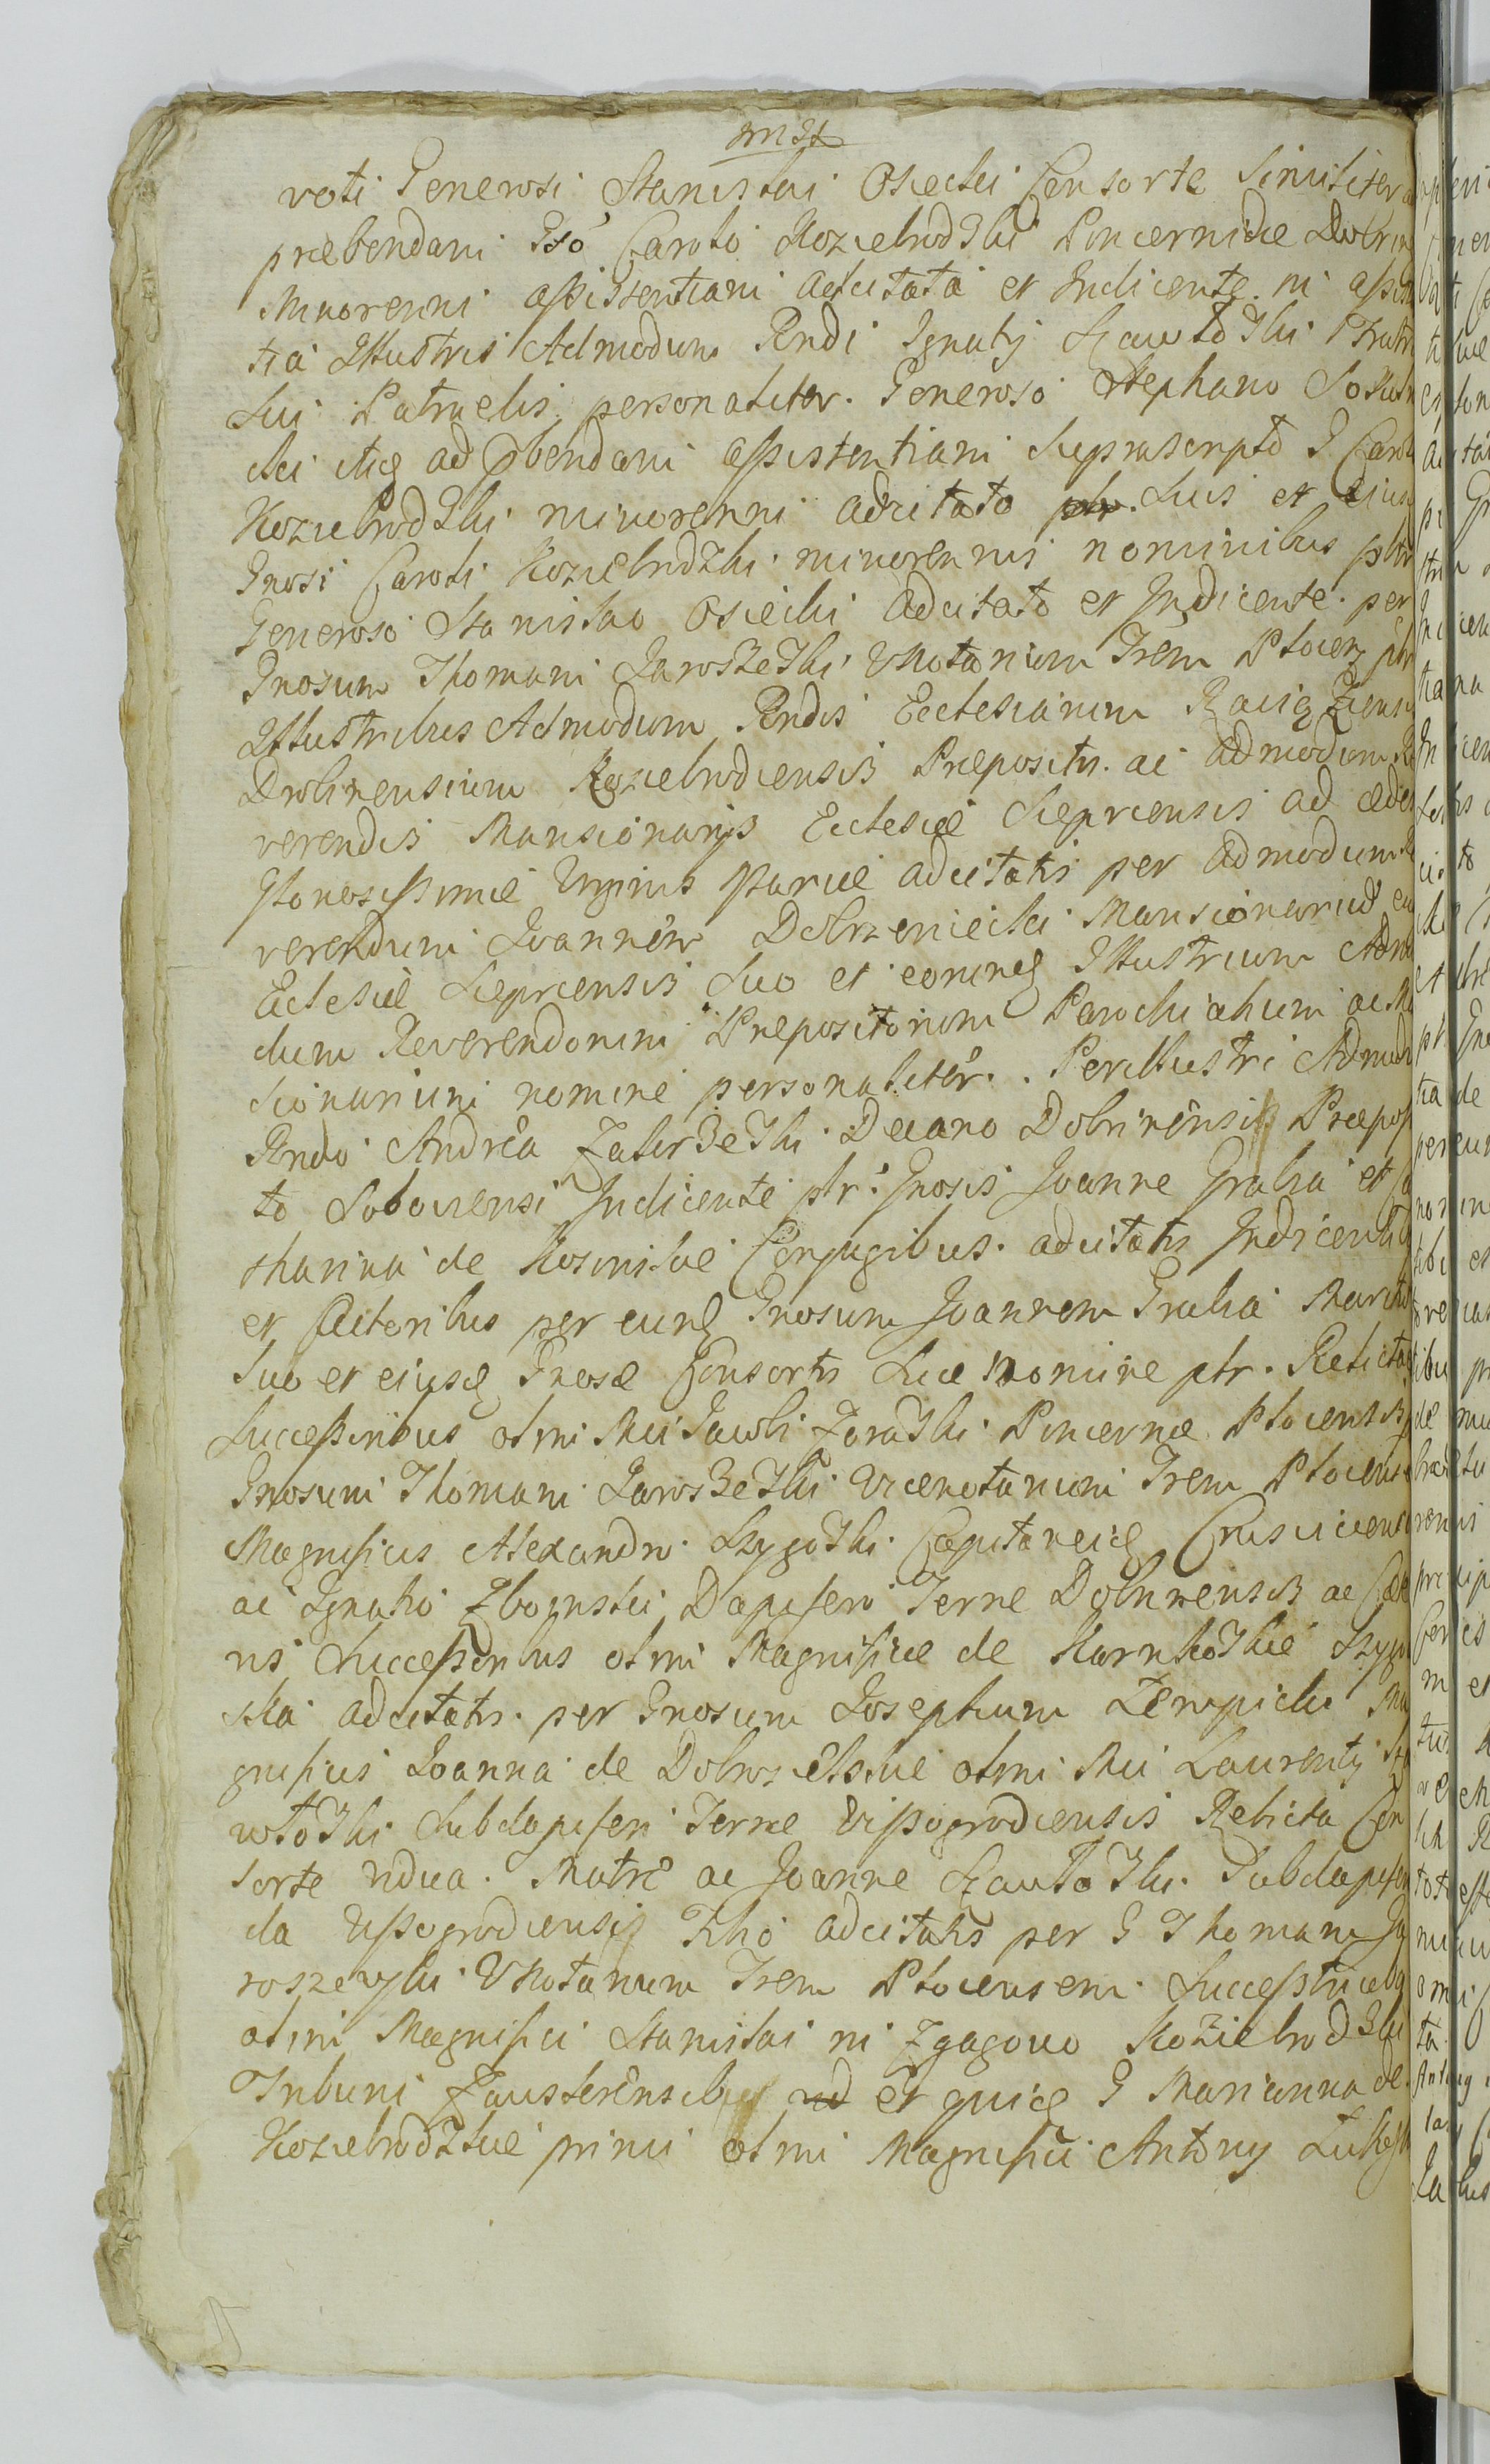 roti Generosi Stanislai Osiecki Consorte Similiter
præbendam Gso Carolo Koziebrodzki Pincernidæ Dobrin
Minorenni assistentiam adcitata et Indicente in assist
tia Illustris Admodum Rndi Ignatij Szawłodzki Fratri
Sui Patruelis personaliter. Generoso Stephano
cki itidq ad pbendam assistentiam Suprascripto G Carol
Koziebrodzki minorenni adcitato Suis et ejus
Gnosi Caroli Koziebrodzki minorennis nominibus pltr
Generoso Stanislao Osiecki Adcitato et Indicente per
Gnosum Thomam Jaroszewski VNotarium Trem Plocen pltr
Illustribus Admodum Rndis Ecclesiarum
Drobinensium Koziebrodiensis Præpositis ac admodum Re
verendis Mansionarijs Ecclesiæ Sieprcensis ad ædes
Gloriosissimæ Virginis Mariæ adcitatis per Admodum Re
verendum Joannem Dobrzeniecki Mansionarium
Ecclesiæ Sieprcensis Suo et eorundq Illustrium Admo
dum Reverendorum Præpositorum Parochialium ac Man
sionariorum nomine personaliter. Perillustri Admodu
Rndo Andrea Zaberzewski Decano Dobrinensis Præposi
to Indicente pltr. Gnosis Joanne Grabia et Ca
tharina de Conjugibus adcitatis Indicentib
et Actoribus per eundq Gnosum Joannem Grabia Maritu
Suo et ejusdq Gnosæ Consortis Suæ Nomine pltr. Relictis
Successoribus olmi Mci Jacobi Zoradzki Pincernæ Plocensis p
Gnosum Thomam Jaroszewski Vicenotarium Trem Plocensem
Magnificis Alexandro Szygodzki Capitaneidq Crusvicensi
ac Ignatio Zboynski Dapifero Terræ Dobrinensis ac Cæte
ris Successoribus olmi Magnificæ de Karnkodzkie Szygo
ska adcitatis per Gnosum Josephum Zempicki Ma
gnificis Joanna de olmi Mci Laurentij Sza
włodzki Subdapiferi Terræ Vissogrodiensis Relicta Con
sorte vidua Matre ac Joanne Szawłodzki Subdapifer
da Vissogrodiensis Filio adcitatis per G Thomam Ja
roszewski VNotarium Trem Plocensem Successoribq
olmi Magnifici Stanislai in Zgagowo Koziebrodzki
Tribuni Zausterensibus et quidq G Marianna de
Koziebrodzkie primi olmi Magnifici Antony